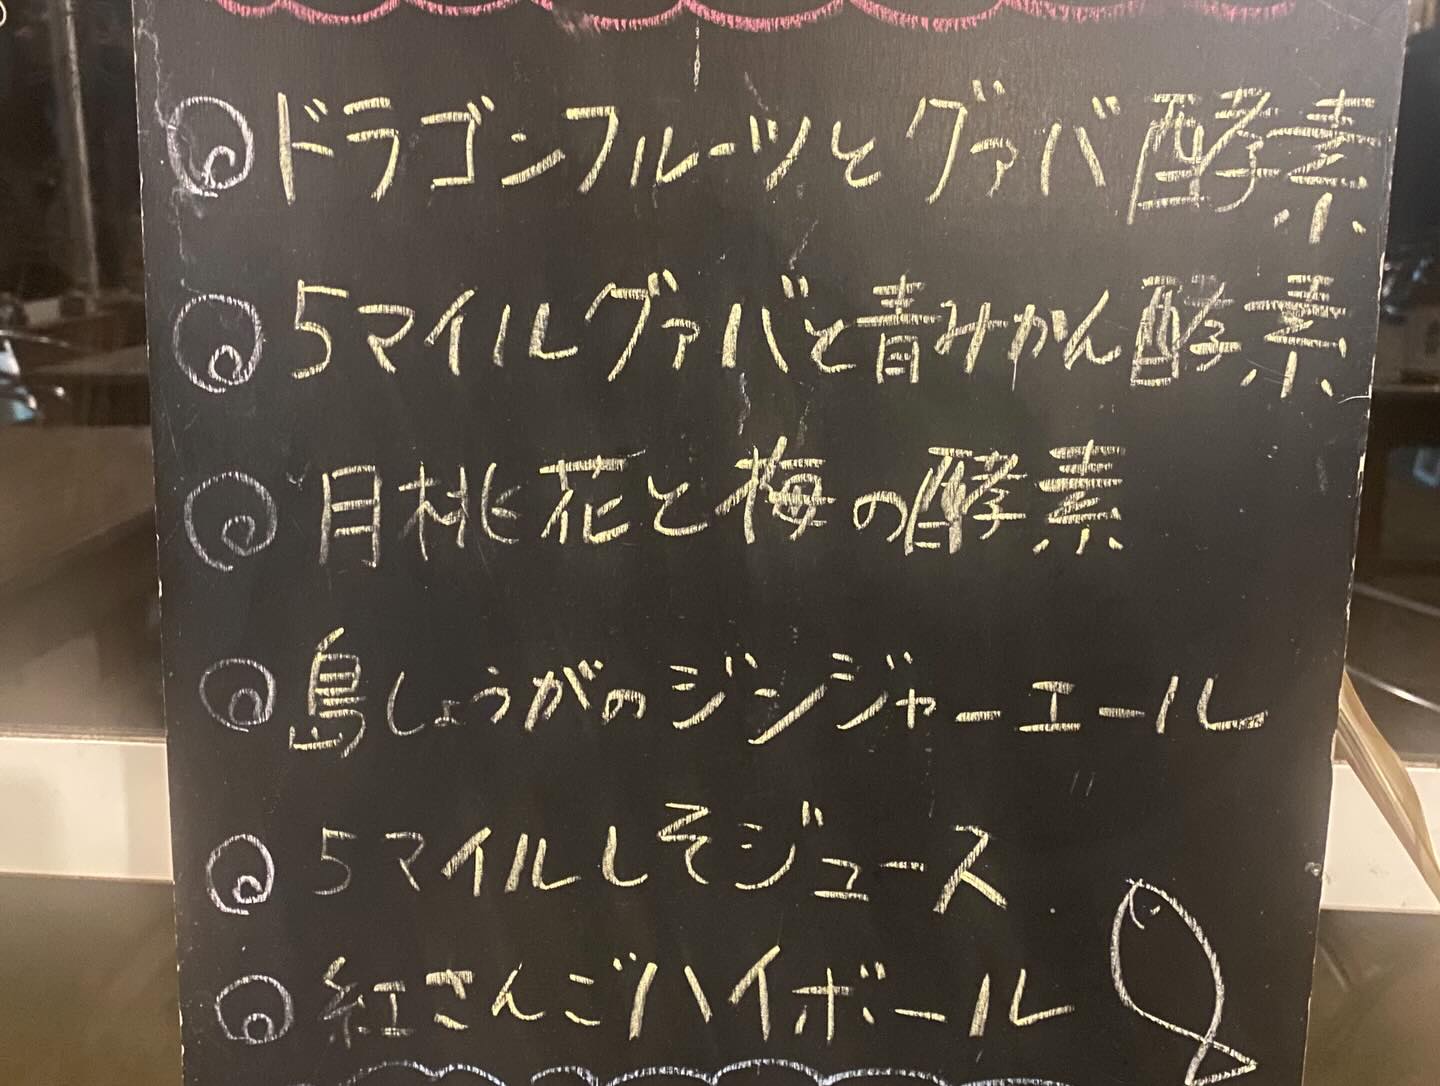 ドラゴンフルーツとグァバ酵素
5マイルグァバと青みかん酵素
月桃花と梅の酵素
島しょうがのジンジャーエール
5マイルしそジュース
紅さんごハイボール